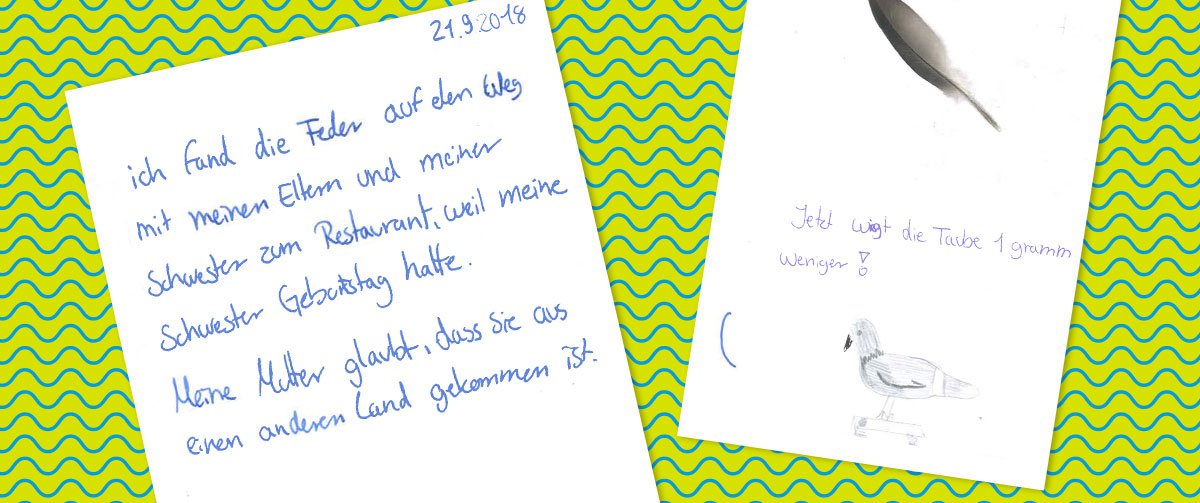 21.9.2018
ich fand die Feder auf den Weg
mit meinen Eltern und meiner
Schwester zum Restaurant, weil meine
Schwester Gebortstag hatte.
Meine Mutter glaubt, dass sie aus
einen anderen Land gekommen ist.
Jetzt wigt die Taube 1 gramm
weniger!